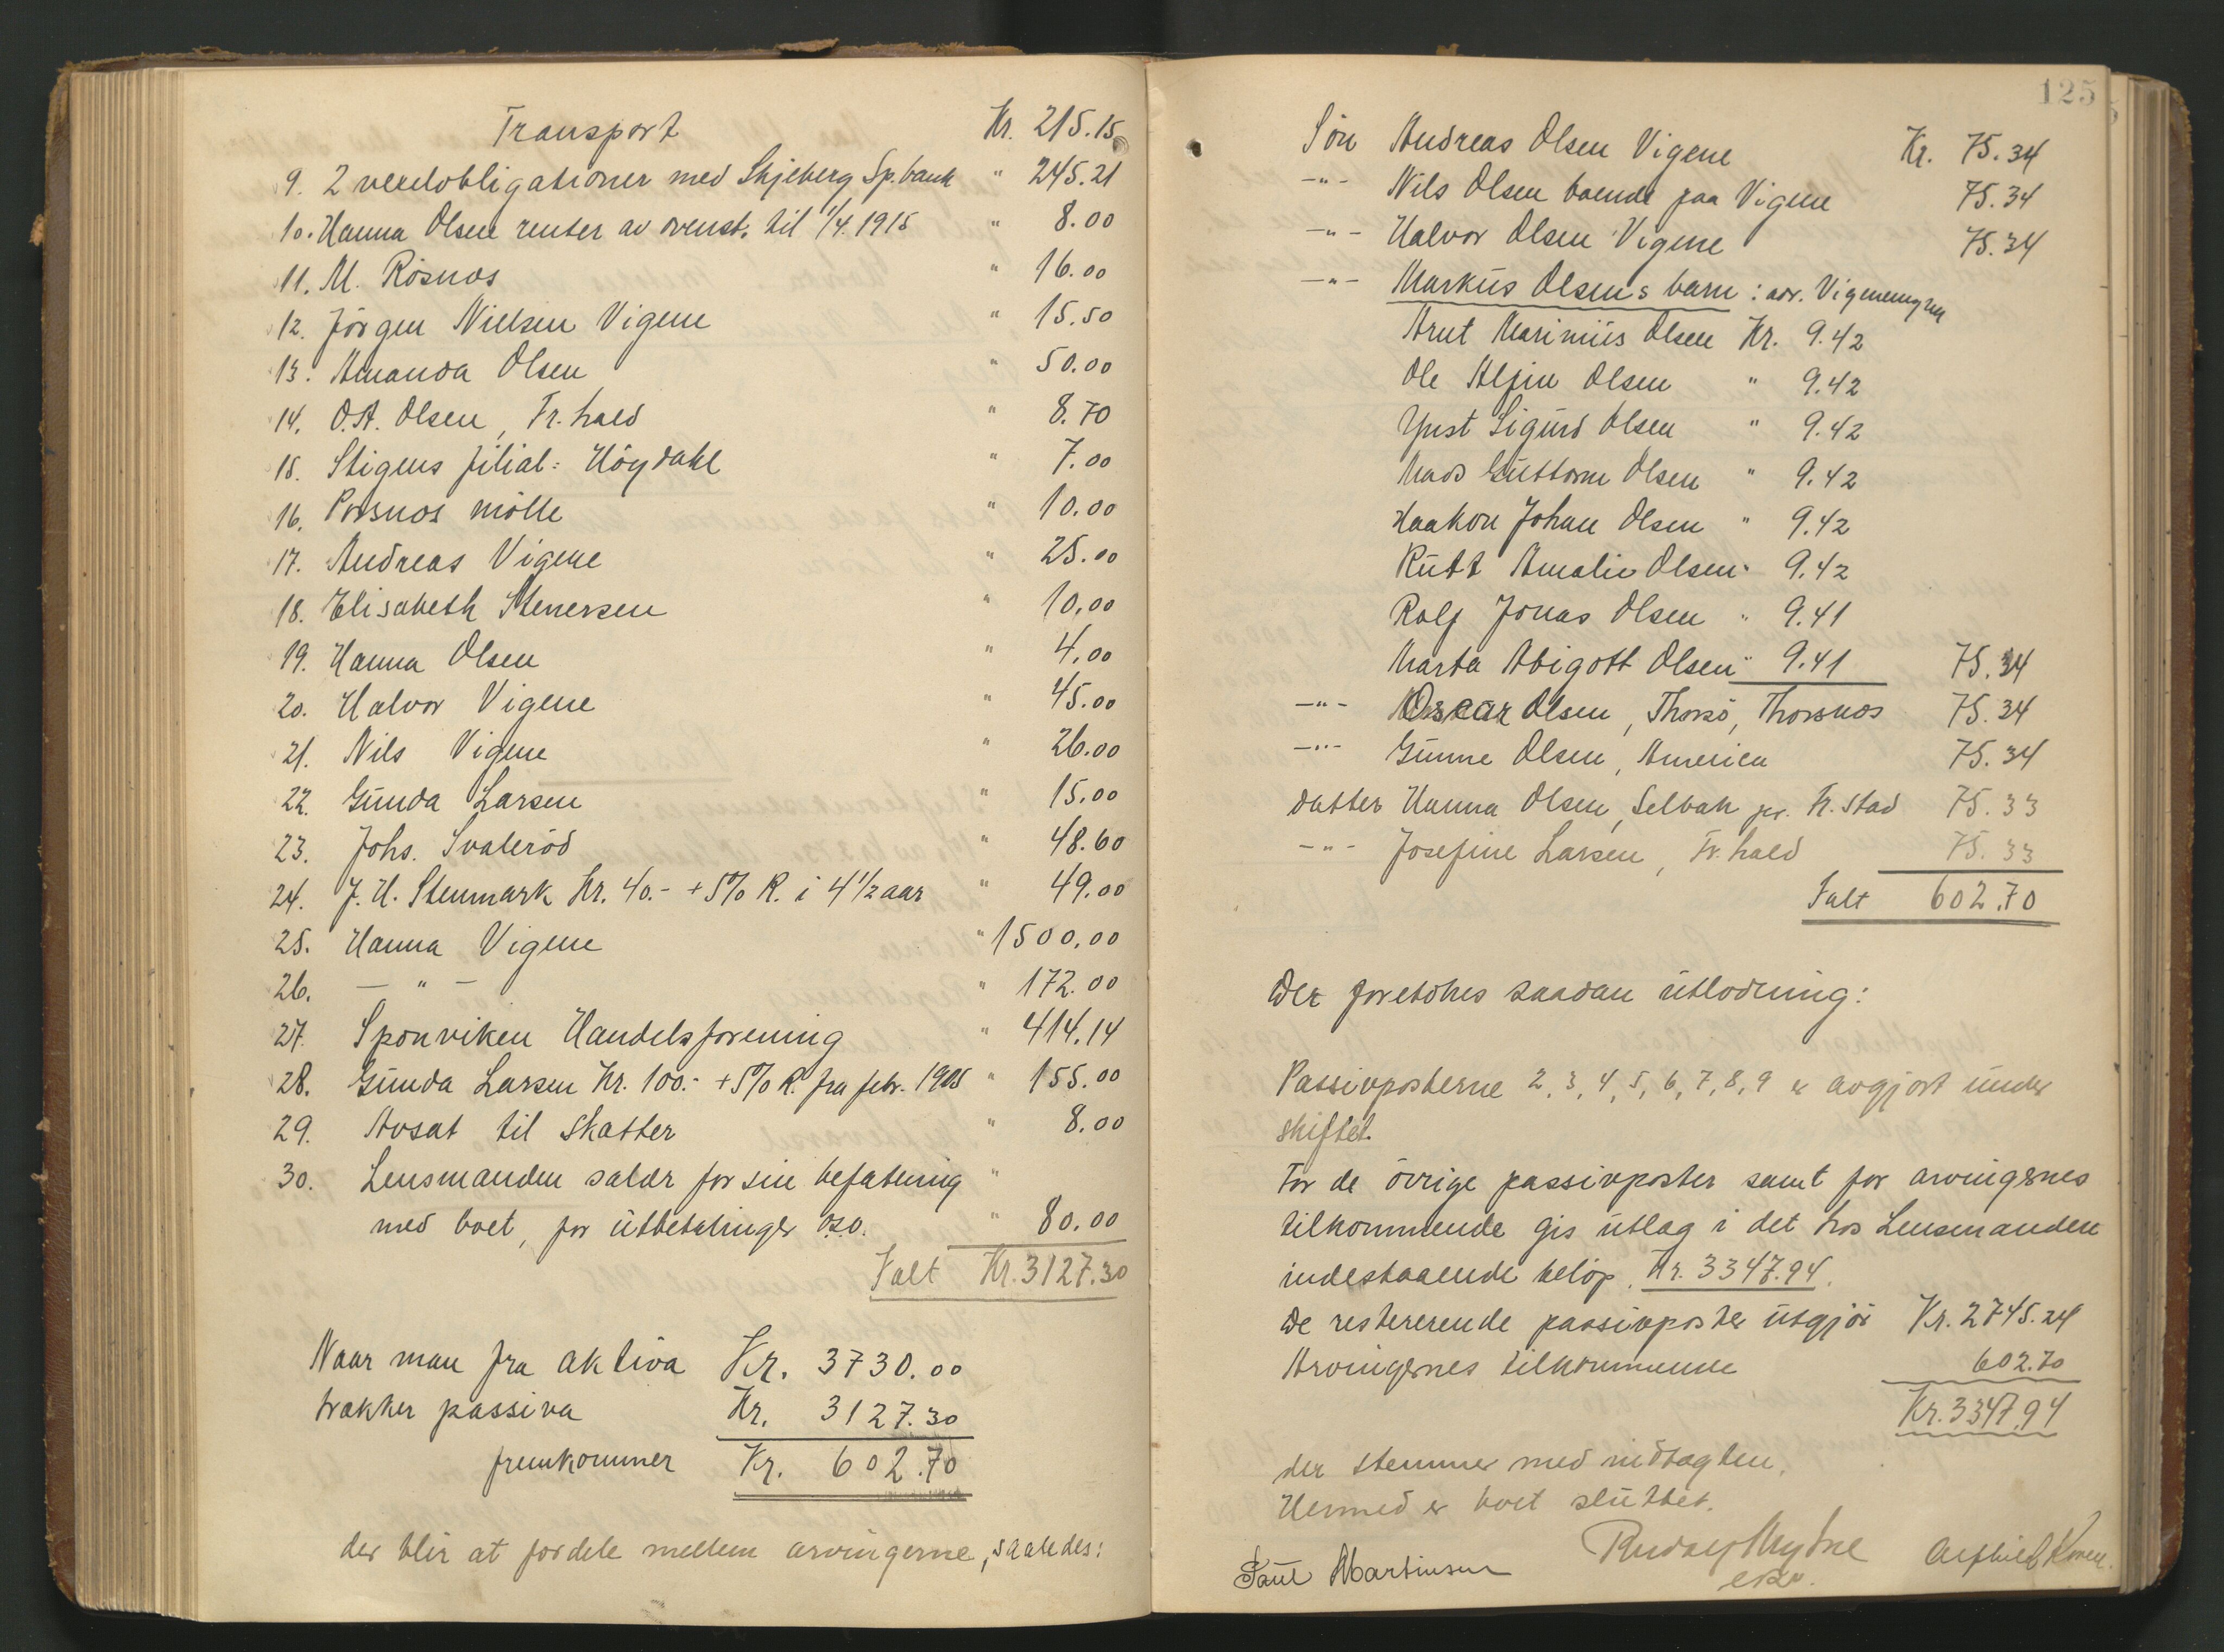 Transport Kr. 215.15
9. 2 vexelobligationer med Skjeberg Sp.bank " 245.21
10. Hanna Olsen renter av ovenst. til 1/4.1915 " 8.00
11. M. Rösnæs " 16.00
12. Jörgen Nielsen Vigene " 15.50
13. Amanda Olsen " 50.00
14. O.A. Olsen, Fr.hald " 8.70
15. Stigens filial: Höydahl " 7.00
16. mölle " 10.00
17. Andreas Vigene " 25.00
18. Elisabeth Stenersen " 10,00
19. Hanna Olsen " 4,00
20. Halvor Vigene " 45.00
21. Nils Vigene " 26.00
22. Gunda Larsen " 15.00
23. Johs. Svaleröd " 48.60
24. J. H. Stenmark Kr. 40.- + 5% R. i 4 1/2 aar " 49.00
25. Hanna Vigene " 1500.00
26. — " — " 172.00
27. Sponviken Handelsforening " 414.14
28. Gunda Larsen Kr. 100.- + 5% R. fra febr. 1905 " 155.00
29. Avsat til skatter " 8.00
30. Lensmanden salær for sin befatning "
med boet, for utbetalinger o.s.v. " 80.00
Ialt Kr. 3127.30
Naar man fra aktiva Kr. 3730.00
trækker passiva Kr. 3127.30
fremkommer Kr. 602.70
der blir at fordele mellem arvingerne, saaledes:
125
Sön Andreas Olsen Vigene Kr. 75.34
-"- Nils Olsen boende paa Vigene 75.34
-"- Halvor Olsen Vigene 75.34
-"- Markus Olsens barn: adr.
Arnt Marinius Olsen Kr. 9.42
Ole Alfin Olsen " 9.42
Sigurd Olsen " 9.42
Mads Guttorm Olsen " 9.42
Haakon Johan Olsen " 9.42
Rutt Amalie Olsen " 9.42
Rolf Jonas Olsen " 9.41
Marta Abigott Olsen " 9.41 75.34
-"- Oscar Olsen, Thorsö, Thorsnæs 75.34
-"- Gunne Olsen, America 75.34
datter Hanna Olsen, Selbak pr. Fr.stad 75.33
-"- Josefine Larsen, Fr.hald 75.33
Ialt 602.70
Der foretokes saadan utlodning:
Passivposterne 2, 3, 4, 5, 6, 7, 8, 9 er avgjort under
skiftet.
For de övrige passivposter samt for arvingernes
tilkommende gis utlag i det hos Lensmanden
indestaaende belöp, Kr. 3347.94.
De resterende passivposter utgjör Kr. 2745.24
Arvingernes tilkommende 602.70
Kr. 3347.94
der stemmer med indtægten.
Hermed er boet sluttet.
Paul Martinsen